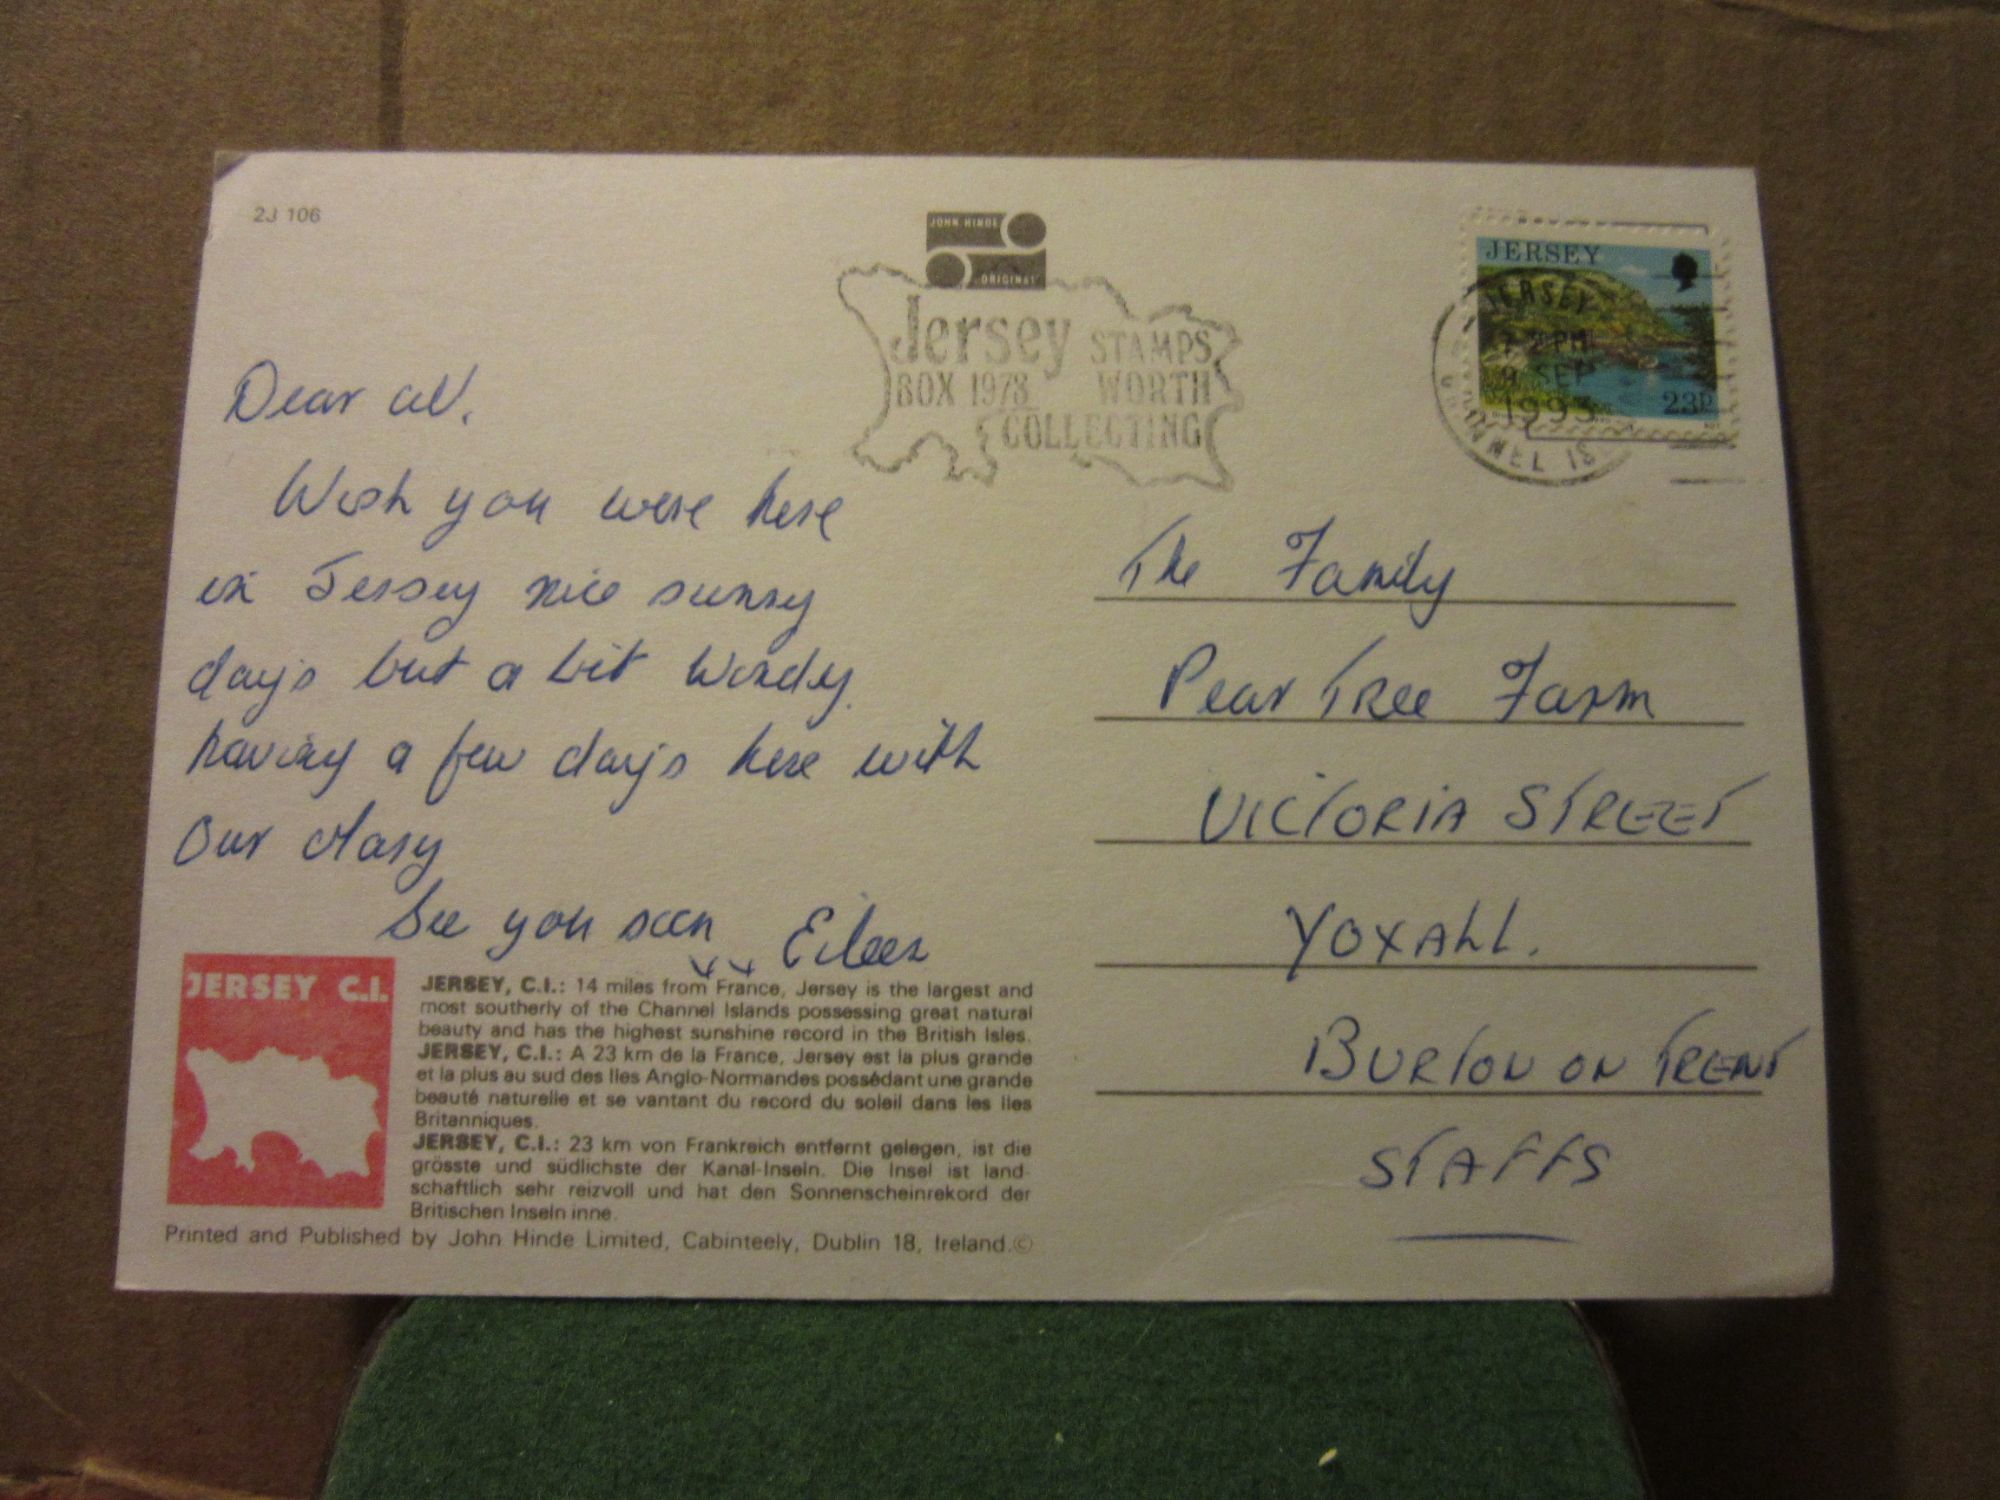 2J 106
JOHN HINDE
ORIGINAL
Jersey STAMPS
BOX 1978 WORTH
COLLECTING
JERSEY
23P
JERSEY
2 PM
9 SEP
1993
CHANNEL IS
Dear all,
Wish you were here
in Jersey nice sunny
days but a bit windy.
having a few days here with
Our Mary
See you soon Eileen
x x
The Family
Pear Tree Farm
VICTORIA STREET
YOXALL.
BURTON ON TRENT
STAFFS
JERSEY C.I.
JERSEY, C.I.: 14 miles from France, Jersey is the largest and
most southerly of the Channel Islands possessing great natural
beauty and has the highest sunshine record in the British Isles.
JERSEY, C.I.: A 23 km de la France, Jersey est la plus grande
et la plus au sud des Iles Anglo-Normandes possédant une grande
beauté naturelle et se vantant du record du soleil dans les Iles
Britanniques.
JERSEY, C.I.: 23 km von Frankreich entfernt gelegen, ist die
grösste und südlichste der Kanal-Inseln. Die Insel ist land-
schaftlich sehr reizvoll und hat den Sonnenscheinrekord der
Britischen Inseln inne.
Printed and Published by John Hinde Limited, Cabinteely, Dublin 18, Ireland.©